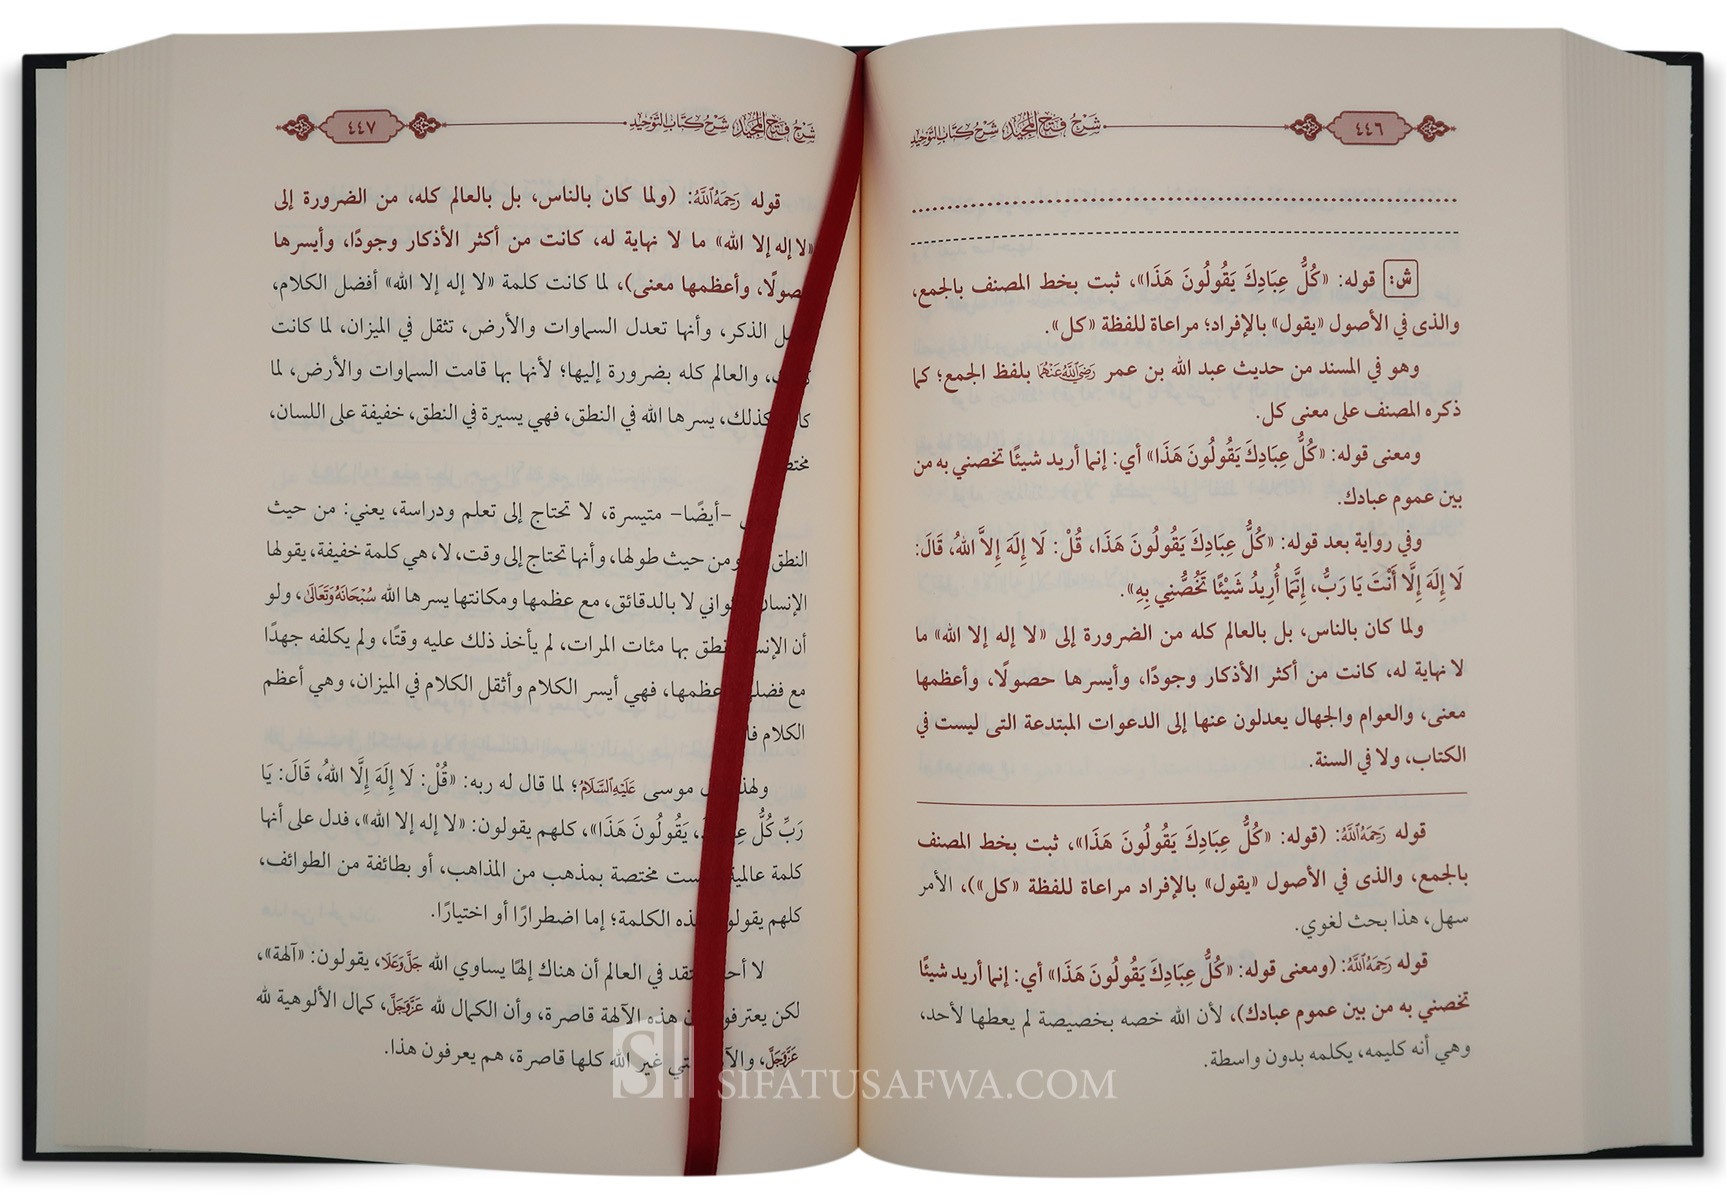 شرح فتح المجيد شرح كتاب التوحيد
٤٤٦
ش: قوله: «كُلُّ عِبَادِكَ يَقُولُونَ هَذَا»، ثبت بخط المصنف بالجمع،
والذى في الأصول «يقول» بالإفراد؛ مراعاة للفظة «كل».
وهو في المسند من حديث عبد الله بن عمر رَضِيَ اللَّهُ عَنْهُمَا بلفظ الجمع؛ كما
ذكره المصنف على معنى كل.
ومعنى قوله: «كُلُّ عِبَادِكَ يَقُولُونَ هَذَا» أي: إنما أريد شيئًا تخصني به من
بين عموم عبادك.
وفي رواية بعد قوله: «كُلُّ عِبَادِكَ يَقُولُونَ هَذَا، قُلْ: لَا إِلَهَ إِلاَّ اللهُ، قَالَ:
لَا إِلَهَ إِلَّا أَنْتَ يَا رَبُّ، إِنَّمَا أُرِيدُ شَيْئًا تَخُصُّنِي بِهِ».
ولما كان بالناس، بل بالعالم كله من الضرورة إلى «لا إله إلا الله» ما
لا نهاية له، كانت من أكثر الأذكار وجودًا، وأيسرها حصولًا، وأعظمها
معنى، والعوام والجهال يعدلون عنها إلى الدعوات المبتدعة التى ليست في
الكتاب، ولا في السنة.
قوله رَحِمَهُ اللَّهُ: (قوله: «كُلُّ عِبَادِكَ يَقُولُونَ هَذَا»، ثبت بخط المصنف
بالجمع، والذى في الأصول «يقول» بالإفراد مراعاة للفظة «كل»)، الأمر
سهل، هذا بحث لغوي.
قوله رَحِمَهُ اللَّهُ: (ومعنى قوله: «كُلُّ عِبَادِكَ يَقُولُونَ هَذَا» أي: إنما أريد شيئًا
تخصني به من بين عموم عبادك)، لأن الله خصه بخصيصة لم يعطها لأحد،
وهي أنه كليمه، يكلمه بدون واسطة.
شرح فتح المجيد شرح كتاب التوحيد
٤٤٧
قوله رَحِمَهُ اللَّهُ: (ولما كان بالناس، بل بالعالم كله، من الضرورة إلى
«لا إله إلا الله» ما لا نهاية له، كانت من أكثر الأذكار وجودًا، وأيسرها
وأعظمها معنى)، لما كانت كلمة «لا إله إلا الله» أفضل الكلام،
الذكر، وأنها تعدل السماوات والأرض، تثقل في الميزان، لما كانت
والعالم كله بضرورة إليها؛ لأنها بها قامت السماوات والأرض، لما
كذلك، يسرها الله في النطق، فهي يسيرة في النطق، خفيفة على اللسان،
-أيضًا- متيسرة، لا تحتاج إلى تعلم ودراسة، يعني: من حيث
النطق ومن حيث طولها، وأنها تحتاج إلى وقت، لا، هي كلمة خفيفة، يقولها
لا بالدقائق، مع عظمها ومكانتها يسرها الله سُبْحَانَهُ وَتَعَالَى، ولو
أن بها مئات المرات، لم يأخذ ذلك عليه وقتًا، ولم يكلفه جهدًا
مع فهي أيسر الكلام وأثقل الكلام في الميزان، وهي أعظم
الكلام
موسى عَلَيْهِ السَّلَامُ؛ لما قال له ربه: «قُلْ: لَا إِلَهَ إِلَّا اللهُ، قَالَ: يَا
رَبِّ كُلُّ يَقُولُونَ هَذَا»، كلهم يقولون: «لا إله إلا الله»، فدل على أنها
كلمة مختصة بمذهب من المذاهب، أو بطائفة من الطوائف،
كلهم الكلمة؛ إما اضطرارًا أو اختيارًا.
لا في العالم أن هناك إلهًا يساوي الله جَلَّ وَعَلَا، يقولون: «آلهة»،
لكن هذه الآلهة قاصرة، وأن الكمال لله عَزَّ وَجَلَّ، كمال الألوهية لله
عَزَّ وَجَلَّ، غير الله كلها قاصرة، هم يعرفون هذا.
SIFATUSAFWA.COM